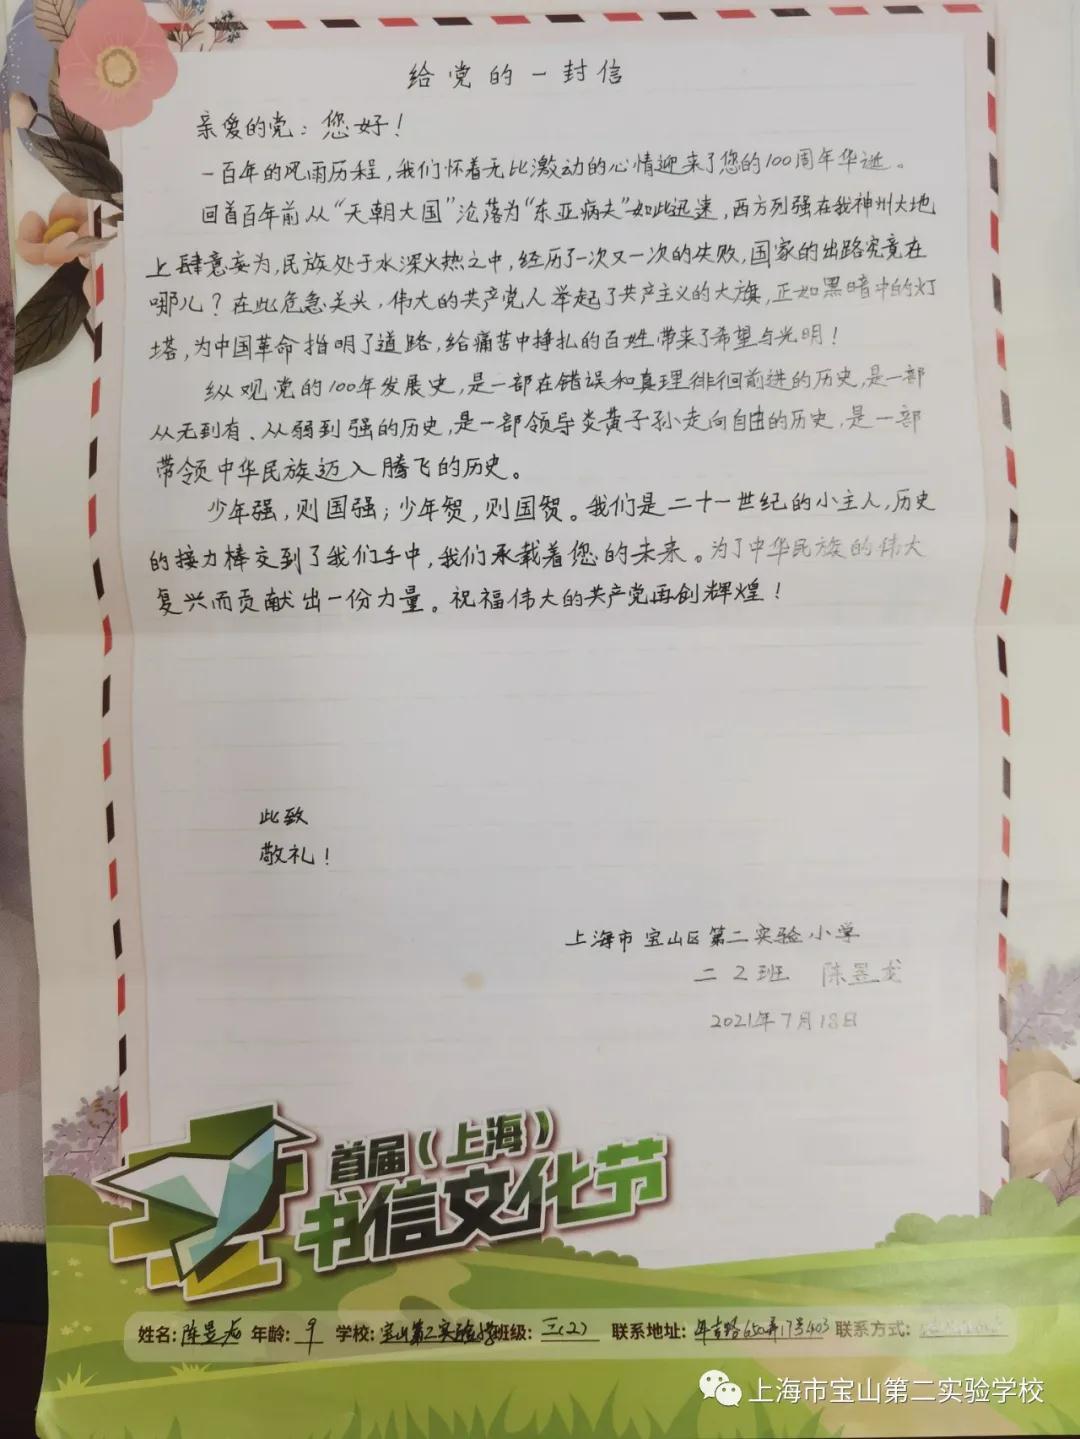 给党的一封信
亲爱的党：您好！
一百年的风雨历程，我们怀着无比激动的心情迎来了您的100周年华诞。
回首百年前从“天朝大国”沦落为“东亚病夫”如此迅速，西方列强在我神州大地
上肆意妄为，民族处于水深火热之中，经历了一次又一次的失败，国家的出路究竟在
哪儿？在此危急关头，伟大的共产党人举起了共产主义的大旗，正如黑暗中的灯
塔，为中国革命指明了道路，给痛苦中挣扎的百姓带来了希望与光明！
纵观党的100年发展史，是一部在错误和真理徘徊前进的历史，是一部
从无到有、从弱到强的历史，是一部领导炎黄子孙走向自由的历史，是一部
带领中华民族迈入腾飞的历史。
少年强，则国强；少年智，则国智。我们是二十一世纪的小主人，历史
的接力棒交到了我们手中，我们承载着您的未来。为了中华民族的伟大
复兴而贡献出一份力量。祝福伟大的共产党再创辉煌！
此致
敬礼！
上海市宝山区第二实验小学
二2班 陈昱龙
2021年7月18日
首届（上海）
书信文化节
姓名：陈昱龙 年龄：9 学校：宝山第二实验小学 班级：二(2) 联系地址：年吉路650弄17号403 联系方式：
上海市宝山第二实验学校